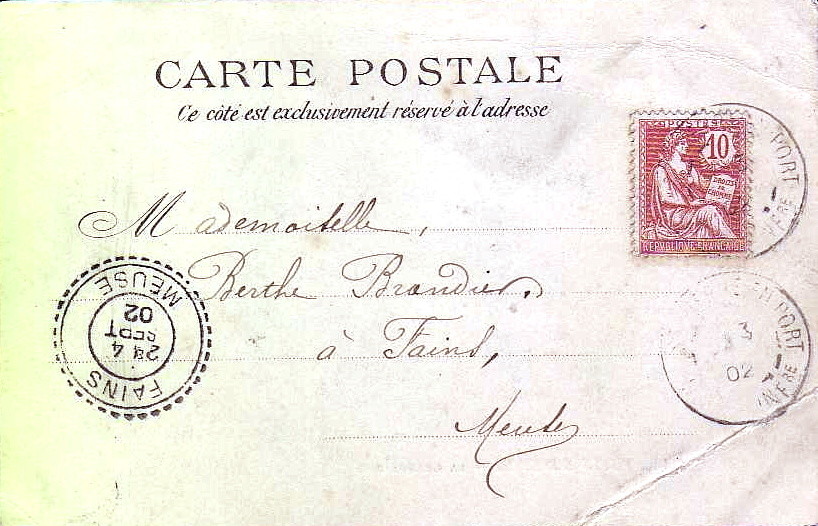 CARTE POSTALE
Ce côté est exclusivement réservé à l'adresse
POSTES
10
DROITS DE L'HOMME
REPUBLIQUE FRANÇAISE
Mademoiselle,
Berthe Brandier.
à Fains,
Meuse
FAINS
24
SEPT
02
MEUSE
PORT
INF RE
EN PORT
3
02
INF RE